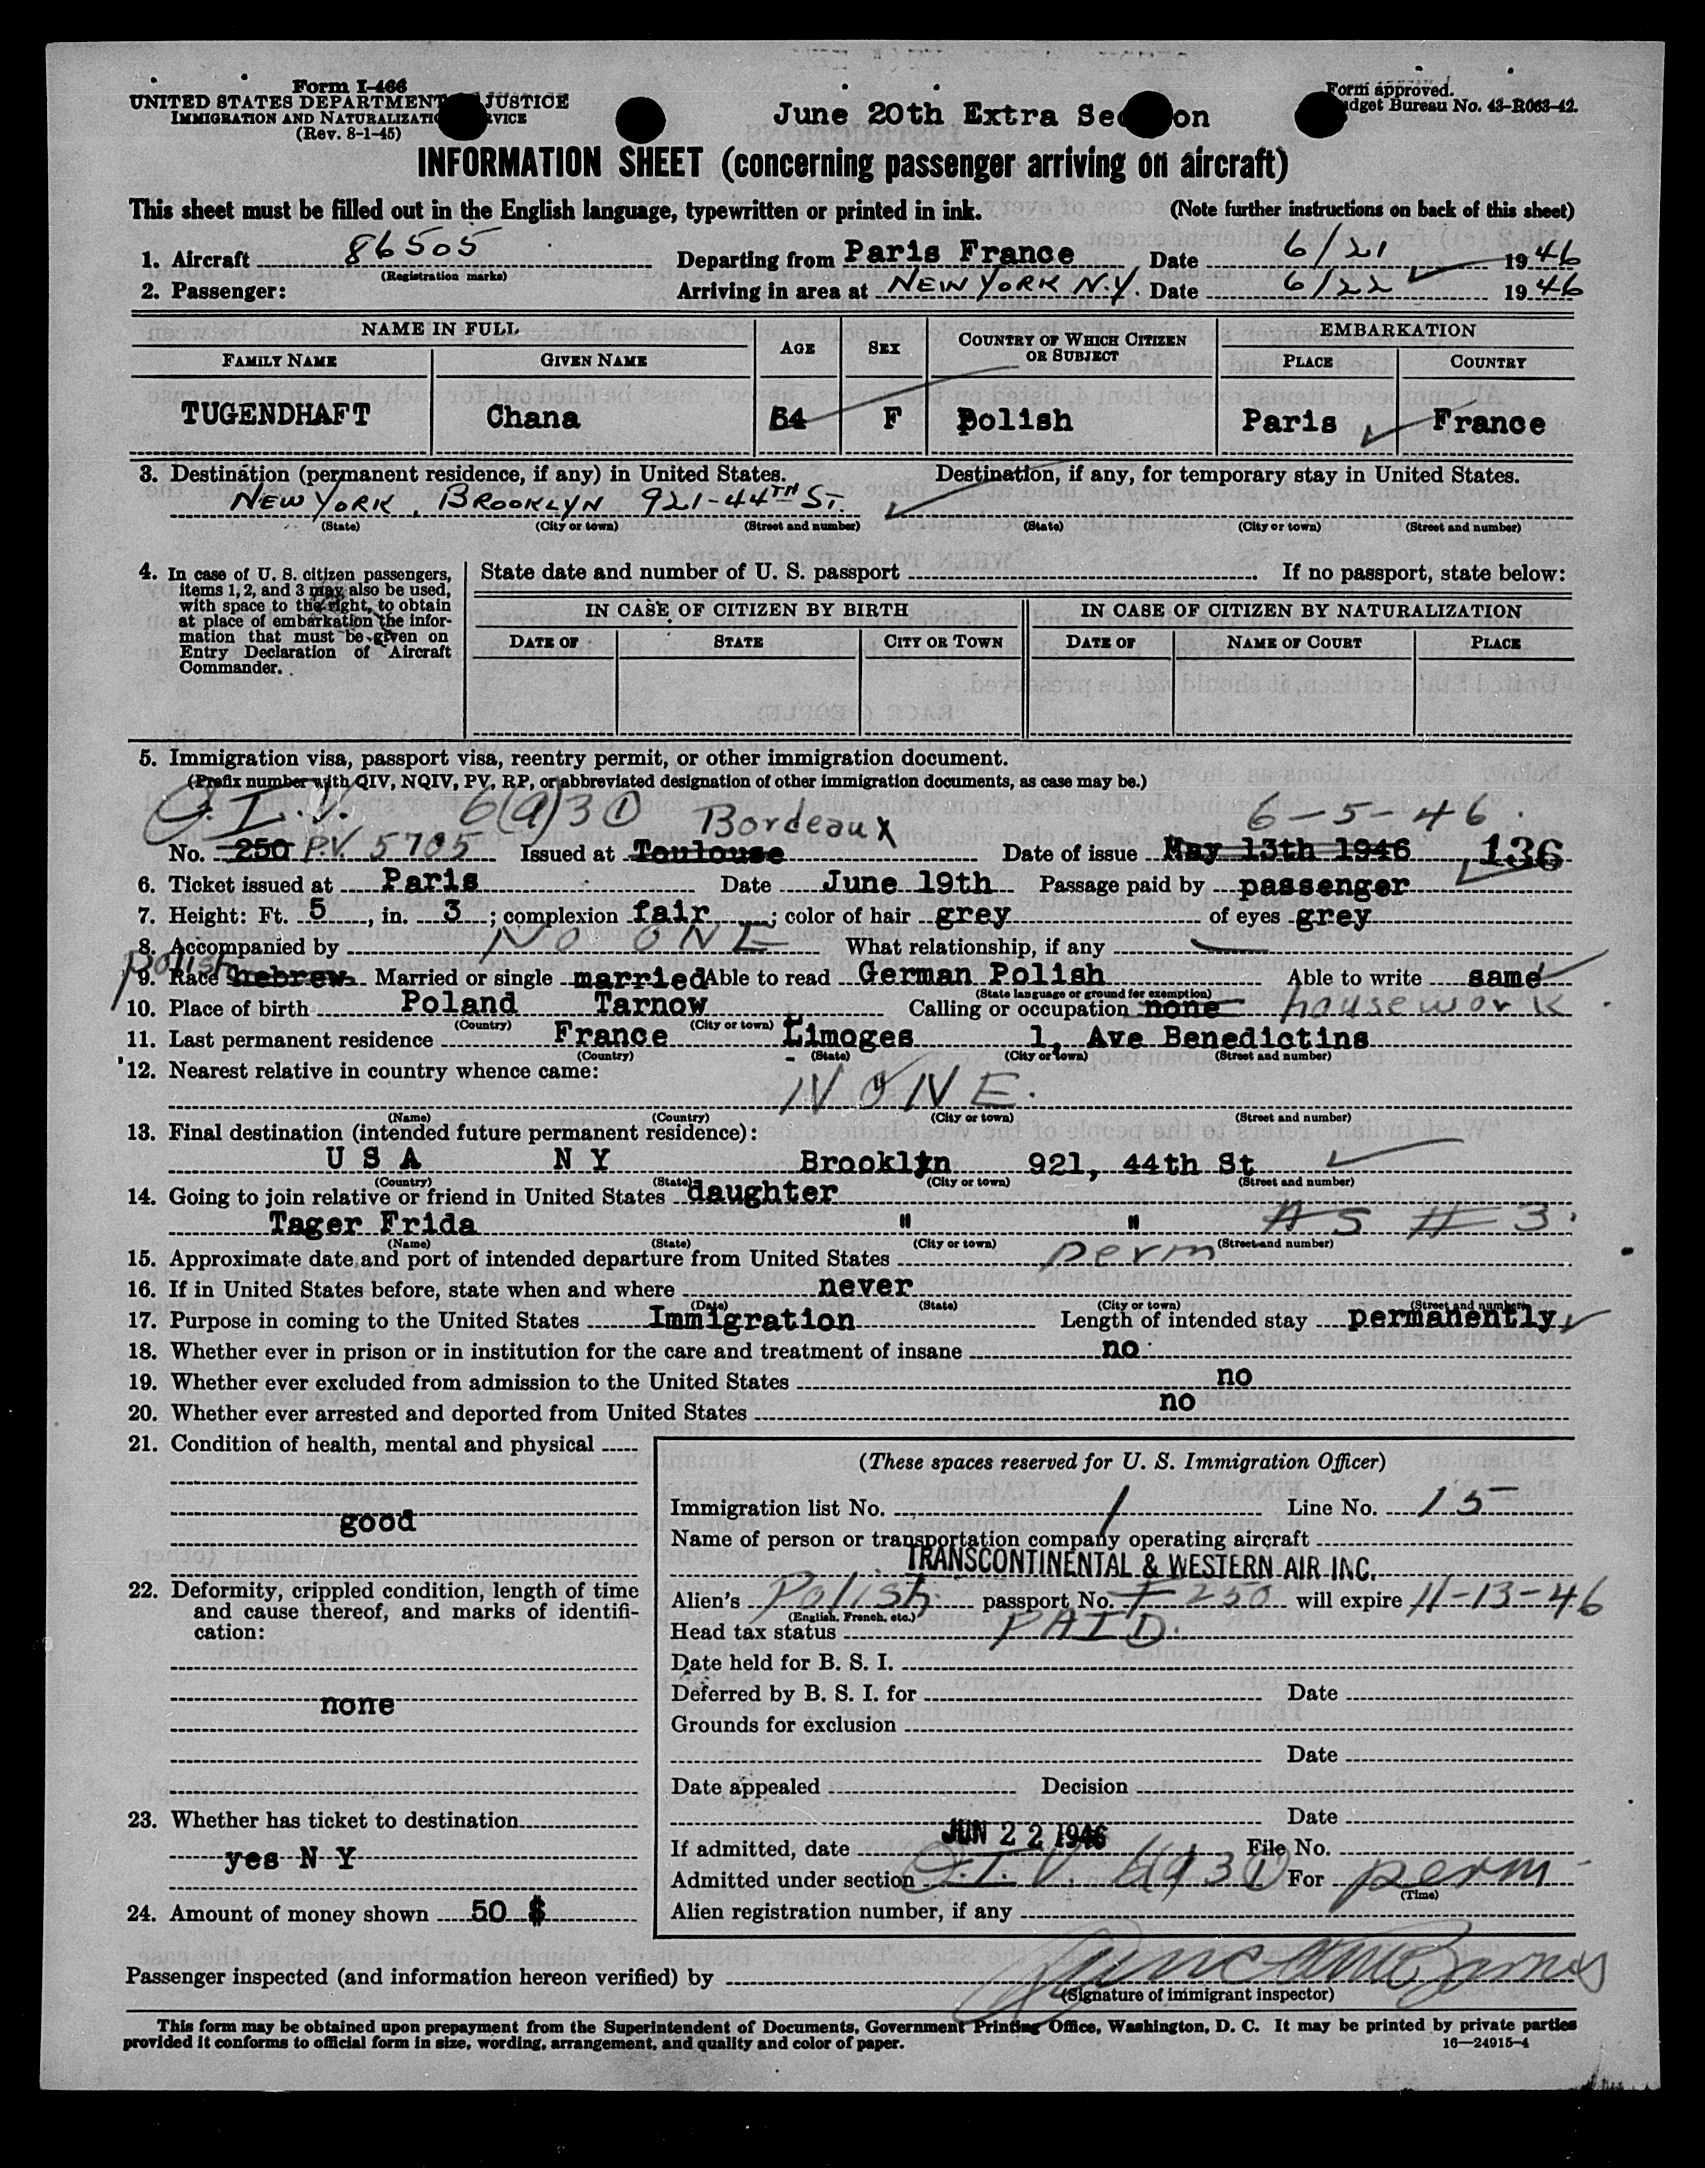 Form I-466
UNITED STATES DEPARTMENT JUSTICE
IMMIGRATION AND NATURALIZATION SERVICE
(Rev. 8-1-45)
June 20th Extra Section
Form approved.
Budget Bureau No. 43-R063-42.
INFORMATION SHEET (concerning passenger arriving on aircraft)
This sheet must be filled out in the English language, typewritten or printed in ink. (Note further instructions on back of this sheet)
1. Aircraft 86505 Departing from Paris France Date 6/21 1946
(Registration marks)
2. Passenger: Arriving in area at NEW YORK N.Y. Date 6/22 1946
NAME IN FULL AGE SEX COUNTRY OF WHICH CITIZEN OR SUBJECT EMBARKATION
FAMILY NAME GIVEN NAME PLACE COUNTRY
TUGENDHAFT Chana 54 F Polish Paris France
3. Destination (permanent residence, if any) in United States. Destination, if any, for temporary stay in United States.
NEW YORK, BROOKLYN, 921-44TH ST.
(State) (City or town) (Street and number) (State) (City or town) (Street and number)
4. In case of U. S. citizen passengers,
items 1, 2, and 3 may also be used,
with space to the right, to obtain
at place of embarkation the infor-
mation that must be given on
Entry Declaration of Aircraft
Commander.
State date and number of U. S. passport If no passport, state below:
IN CASE OF CITIZEN BY BIRTH IN CASE OF CITIZEN BY NATURALIZATION
DATE OF STATE CITY OR TOWN DATE OF NAME OF COURT PLACE
5. Immigration visa, passport visa, reentry permit, or other immigration document.
(Prefix number with QIV, NQIV, PV, RP, or abbreviated designation of other immigration documents, as case may be.)
Q.I.V. 6(a)3 1 Bordeaux 6-5-46.
No. 250 P.V. 5705 Issued at Toulouse Date of issue May 13th 1946 136
6. Ticket issued at Paris Date June 19th Passage paid by passenger
7. Height: Ft. 5, in. 3; complexion fair; color of hair grey of eyes grey
8. Accompanied by NO ONE What relationship, if any
Polish
9. Race hebrew Married or single married Able to read German Polish Able to write same
(State language or ground for exemption)
10. Place of birth Poland Tarnow Calling or occupation none housework.
(Country) (City or town)
11. Last permanent residence France Limoges 1, Ave Benedictins
(Country) (State) (City or town) (Street and number)
12. Nearest relative in country whence came:
NONE.
(Name) (Country) (City or town) (Street and number)
13. Final destination (intended future permanent residence):
U S A N Y Brooklyn 921, 44th St
(Country) (State) (City or town) (Street and number)
14. Going to join relative or friend in United States daughter
Tager Frida " " AS # 3.
(Name) (State) (City or town) (Street and number)
15. Approximate date and port of intended departure from United States perm
16. If in United States before, state when and where never
(Date) (State) (City or town) (Street and number)
17. Purpose in coming to the United States Immigration Length of intended stay permanently
18. Whether ever in prison or in institution for the care and treatment of insane no
19. Whether ever excluded from admission to the United States no
20. Whether ever arrested and deported from United States no
21. Condition of health, mental and physical
good
22. Deformity, crippled condition, length of time
and cause thereof, and marks of identifi-
cation:
none
23. Whether has ticket to destination
yes N Y
24. Amount of money shown 50 $
(These spaces reserved for U. S. Immigration Officer)
Immigration list No. 1 Line No. 15
Name of person or transportation company operating aircraft
TRANSCONTINENTAL & WESTERN AIR INC.
Alien's Polish passport No. F 250 will expire 11-13-46
(English, French, etc.)
Head tax status PAID.
Date held for B. S. I.
Deferred by B. S. I. for Date
Grounds for exclusion
Date
Date appealed Decision
Date
If admitted, date JUN 22 1946 File No.
Admitted under section Q.I.V. 6(a)3 1 For perm
(Time)
Alien registration number, if any
Passenger inspected (and information hereon verified) by
(Signature of immigrant inspector)
This form may be obtained upon prepayment from the Superintendent of Documents, Government Printing Office, Washington, D. C. It may be printed by private parties
provided it conforms to official form in size, wording, arrangement, and quality and color of paper. 16—24915-4